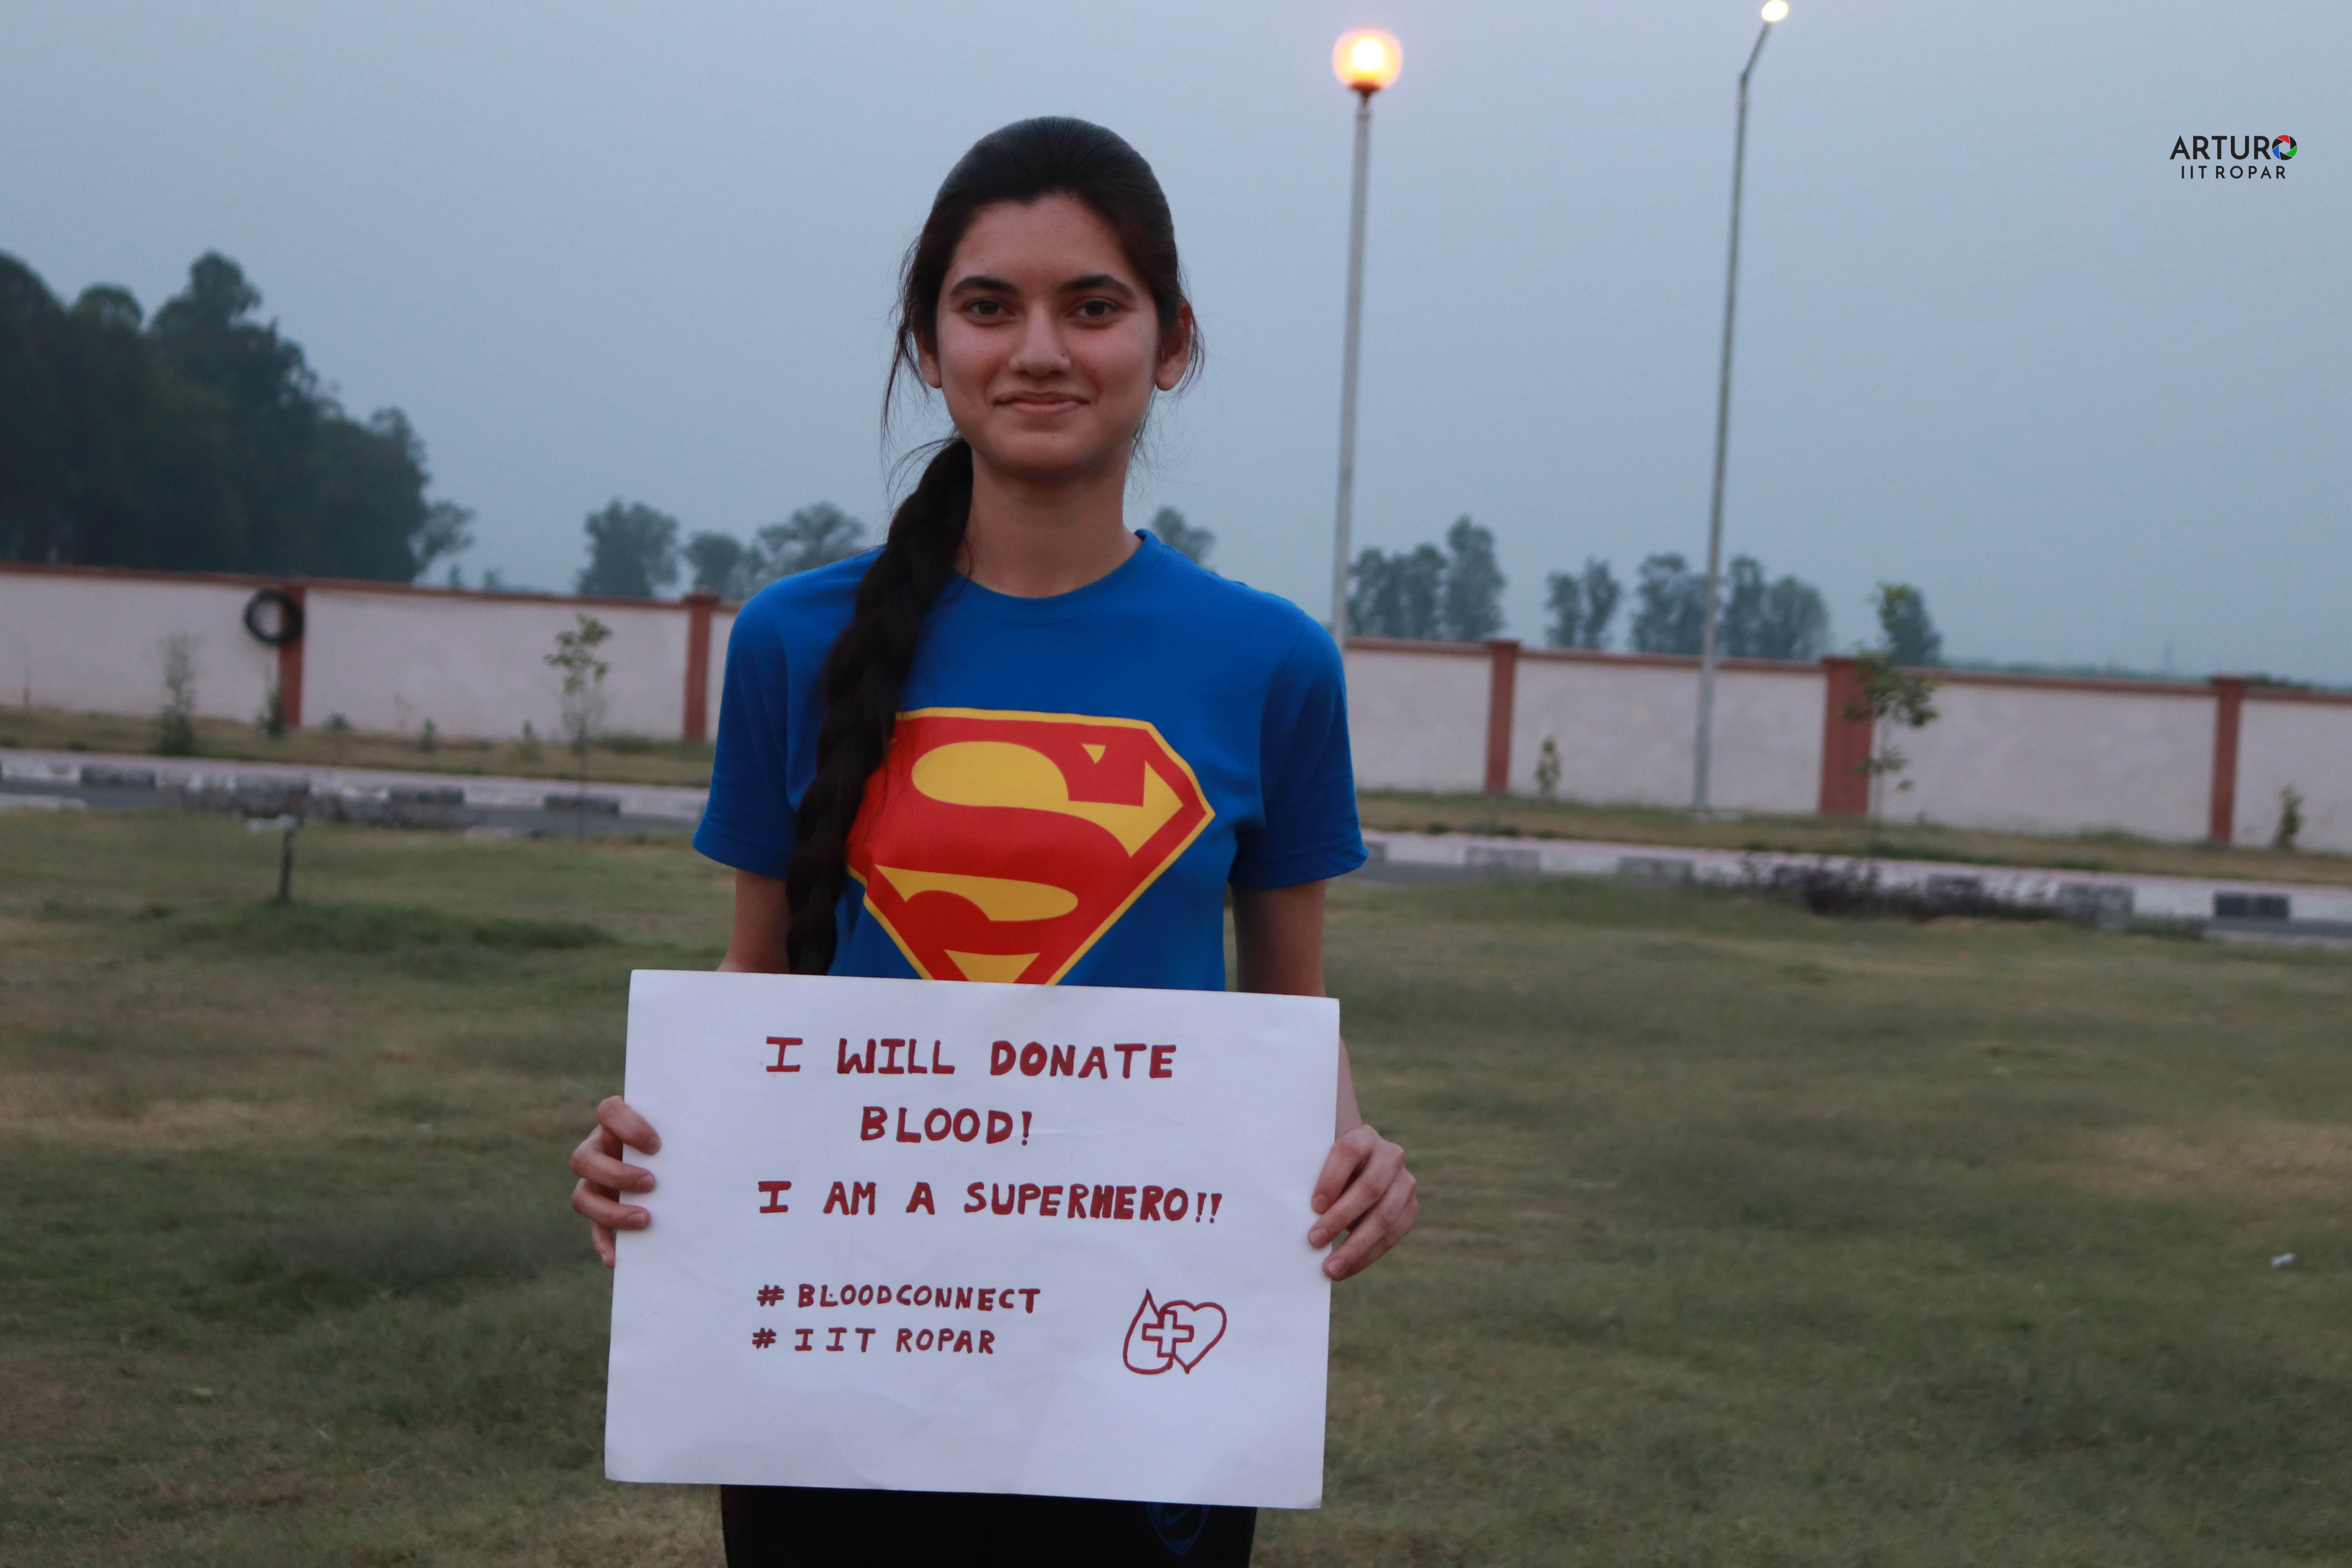 ARTURO
IIT ROPAR
I WILL DONATE
BLOOD!
I AM A SUPERHERO!!
# BLOODCONNECT
# IIT ROPAR